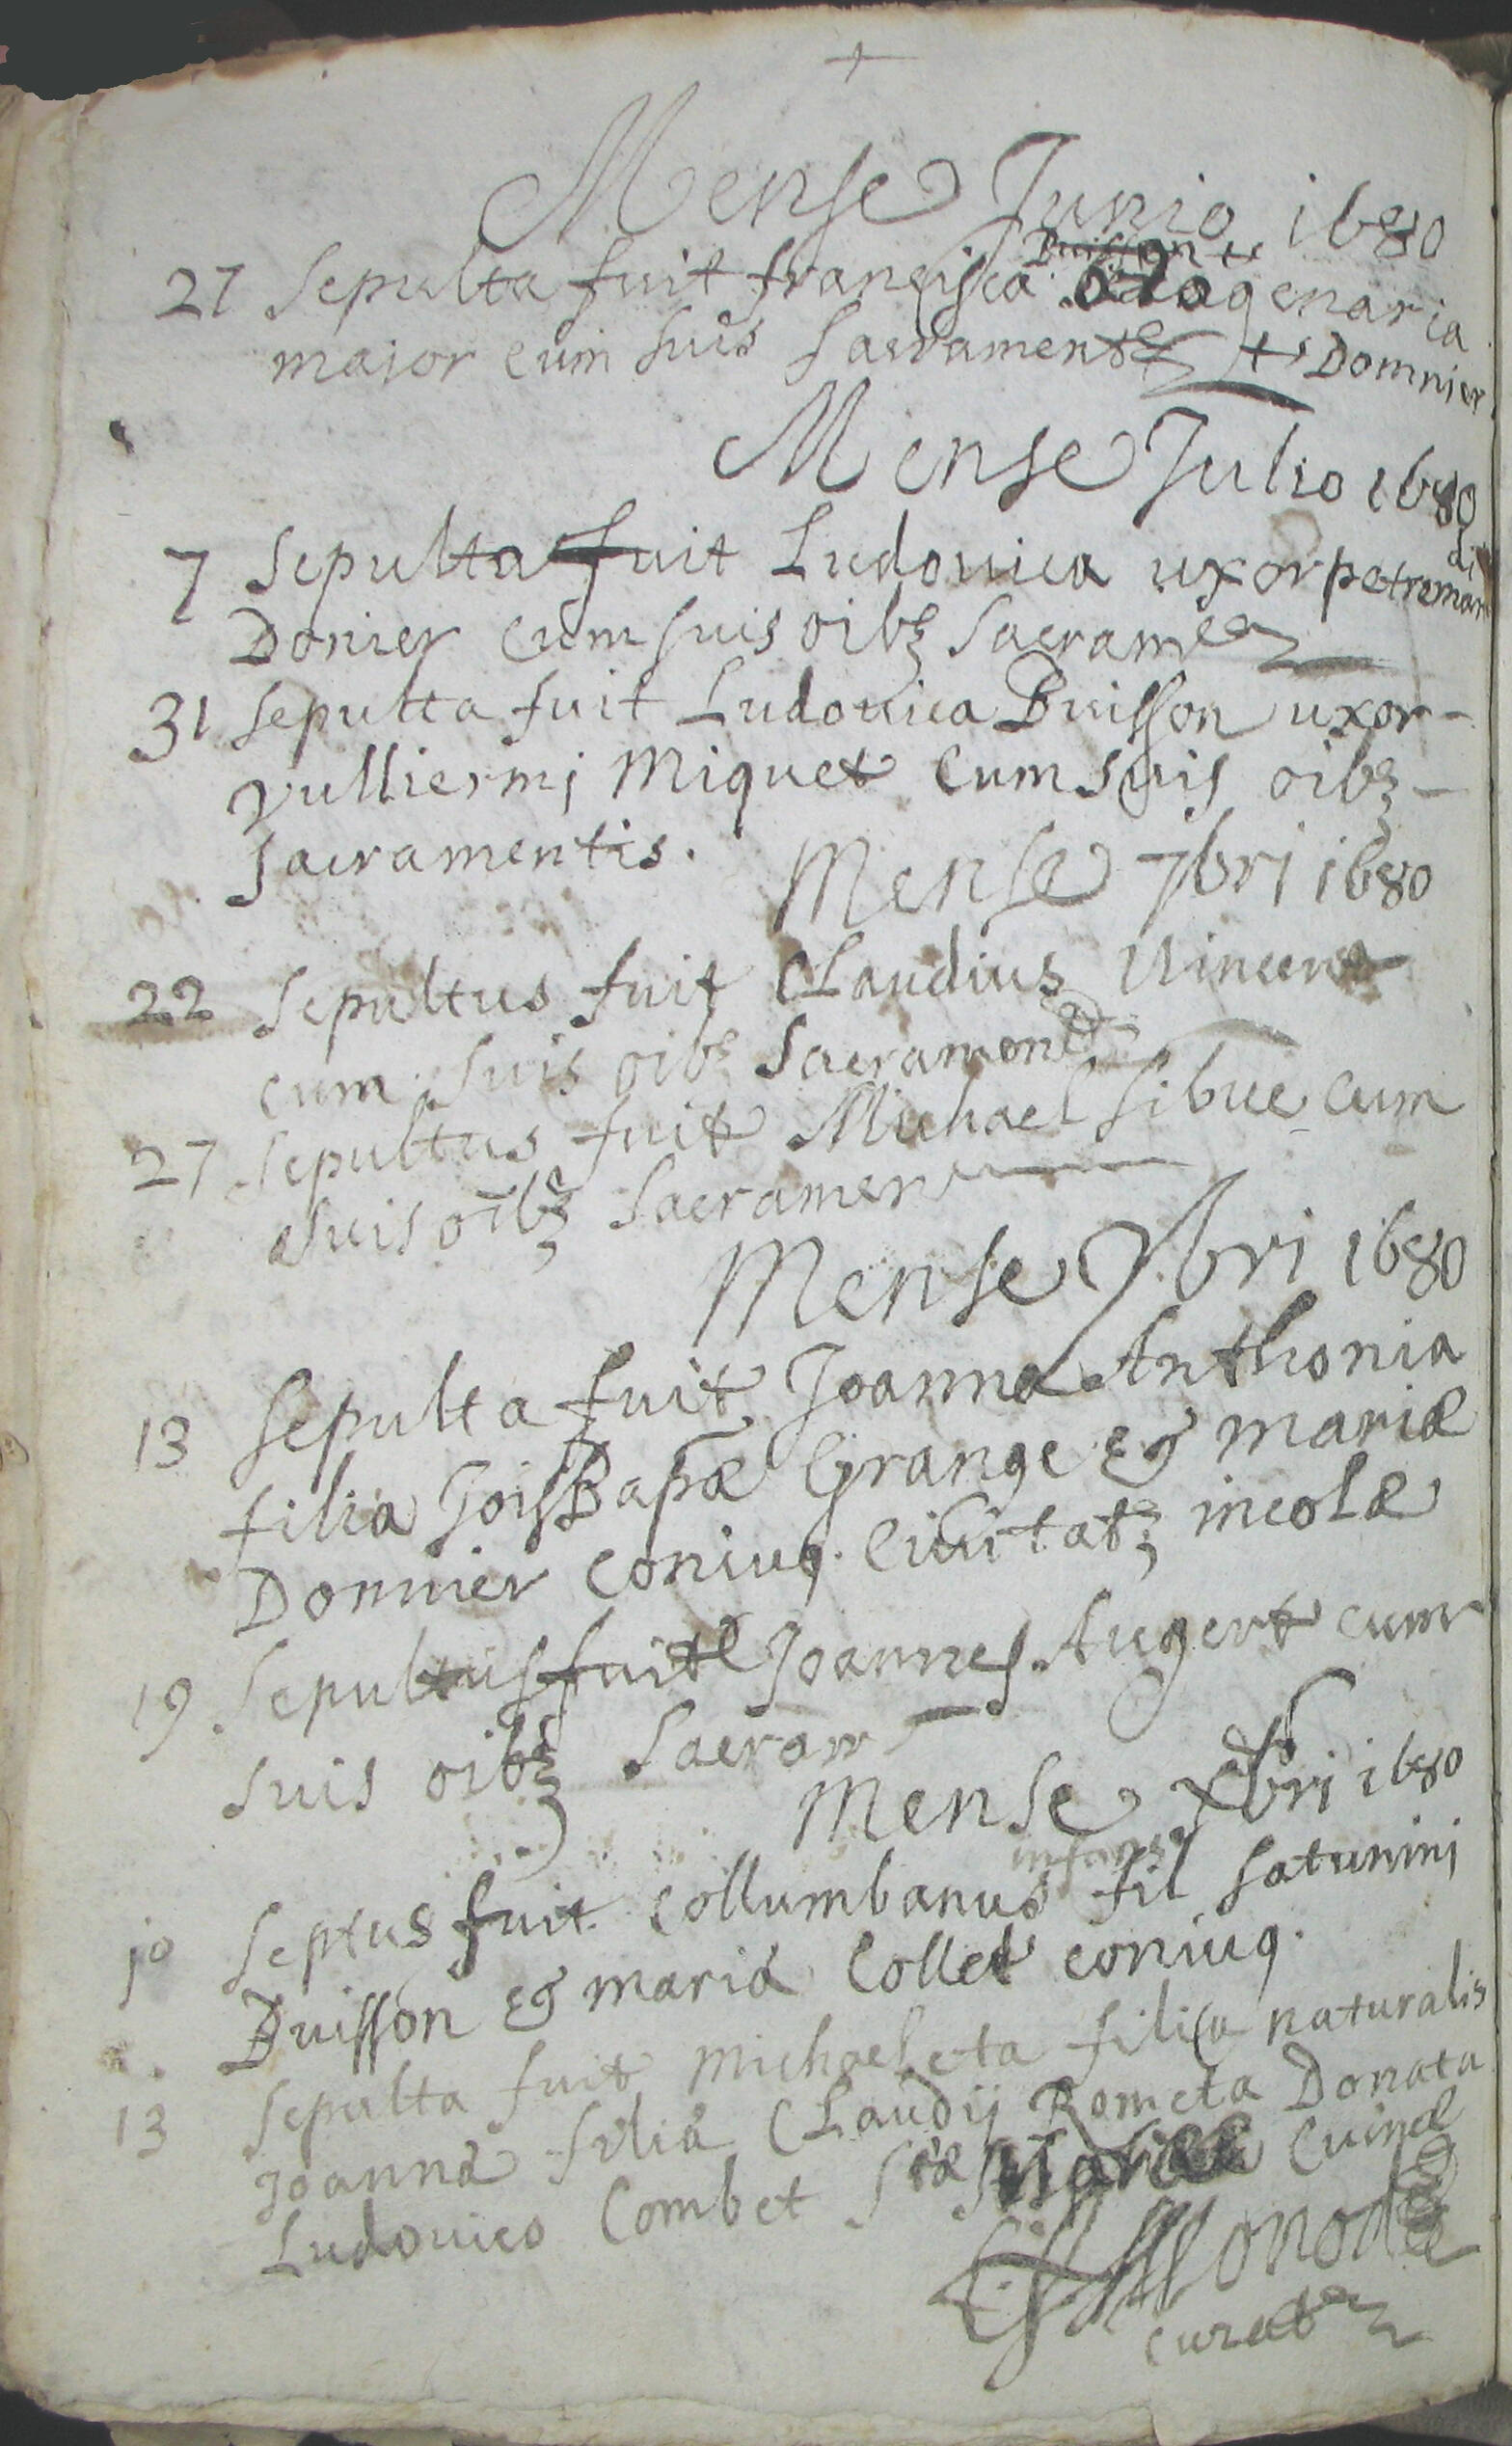 +
Mense Junio 1680
27 Sepulta fuit francisca octogenaria
major cum suis Sacrament + Domnier
Mense Julio 1680
7 Sepulta fuit Ludovica uxor petremandi
Donier cum suis oibz sacram
31 sepulta fuit Ludovica Buisson uxor -
vulliermj Miquet Cum suis oibz -
sacramentis.
Mense 7brj 1680
22 Sepultus fuit CLaudius Vincent
cum suis oibz Sacrament
27 Sepultus fuit Michael sibue cum
suis oibz Sacramen
Mense 9bri 1680
13 Sepulta fuit Joanna Anthonia
filia Jois Bapæ Grange & mariæ
Donnier coniug. Civitatz incolæ
19 Sepultus fuit Joannes Augert cum
suis oibz Sacram
Mense xbri 1680
infans
10 Septus fuit Collumbanus fil saturnini
Buisson & mariæ Collet coniug.
13 Sepulta fuit michaeleta filia naturalis
Joannæ filiæ CLaudij Rometa Donata
Ludovico Combet Stæ Mariæ Cuinæ
curat